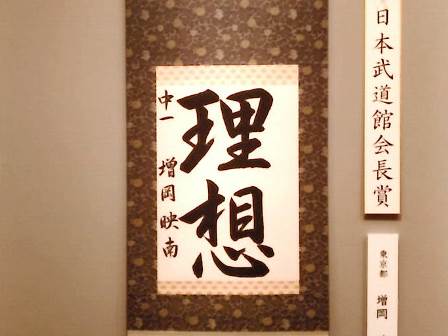 日本武道館会長賞
東京都
増岡
理想
中一 増岡映南